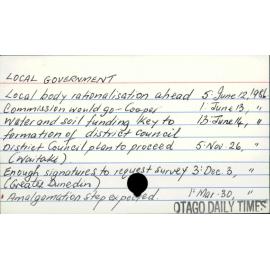 LOCAL GOVERNMENT
Local body rationalisation ahead 5. June 12, 1986
Commission would go - Cooper 1. June 13, "
Water and soil funding key to 13. June 14, "
formation of district council
District Council plan to proceed 5. Nov. 26, "
(Waitaki)
Enough signatures to request survey 3. Dec. 3, "
(Greater Dunedin)
Amalgamation step expected. 1. Mar. 30, "
OTAGO DAILY TIMES